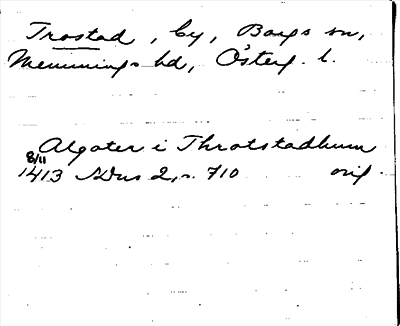 Trostad, by, Bergs sn,
Memmings hd, Österg. l.
Algoter i Throtstadhum
8/11
1413 SDns 2, s. 710 orig.